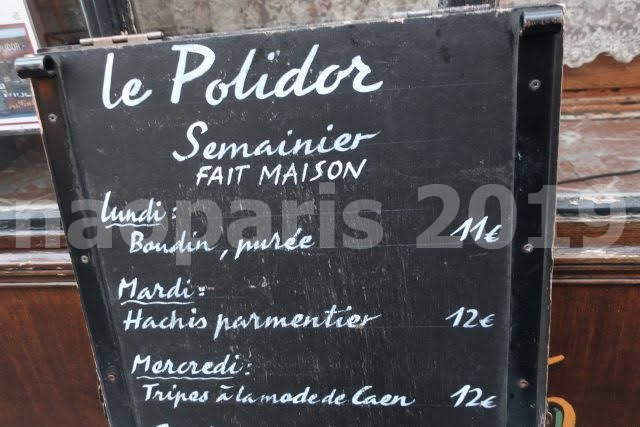 le Polidor
Semainier
FAIT MAISON
Lundi :
Boudin, purée 11€
Mardi :
Hachis parmentier 12€
Mercredi :
Tripes à la mode de Caen 12€
naoparis 2019